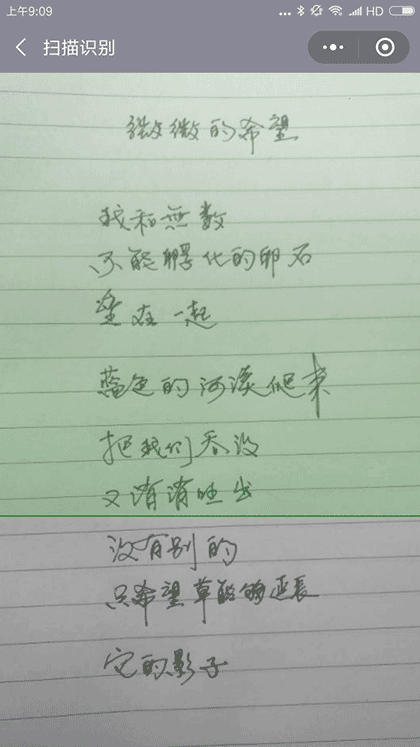 上午9:09
HD
扫描识别
微微的希望
我和無数
不能孵化的卵石
垒在一起
蓝色的河溪爬来
把我们吞没
又悄悄吐出
没有别的
只希望草能够延長
它的影子